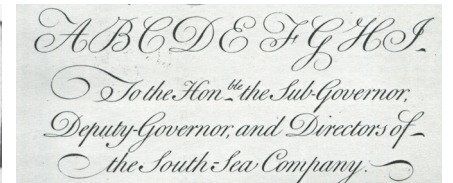 A B C D E F G H I
To the Hon.ble the Sub-Governor,
Deputy-Governor, and Directors of
the South-Sea Company.